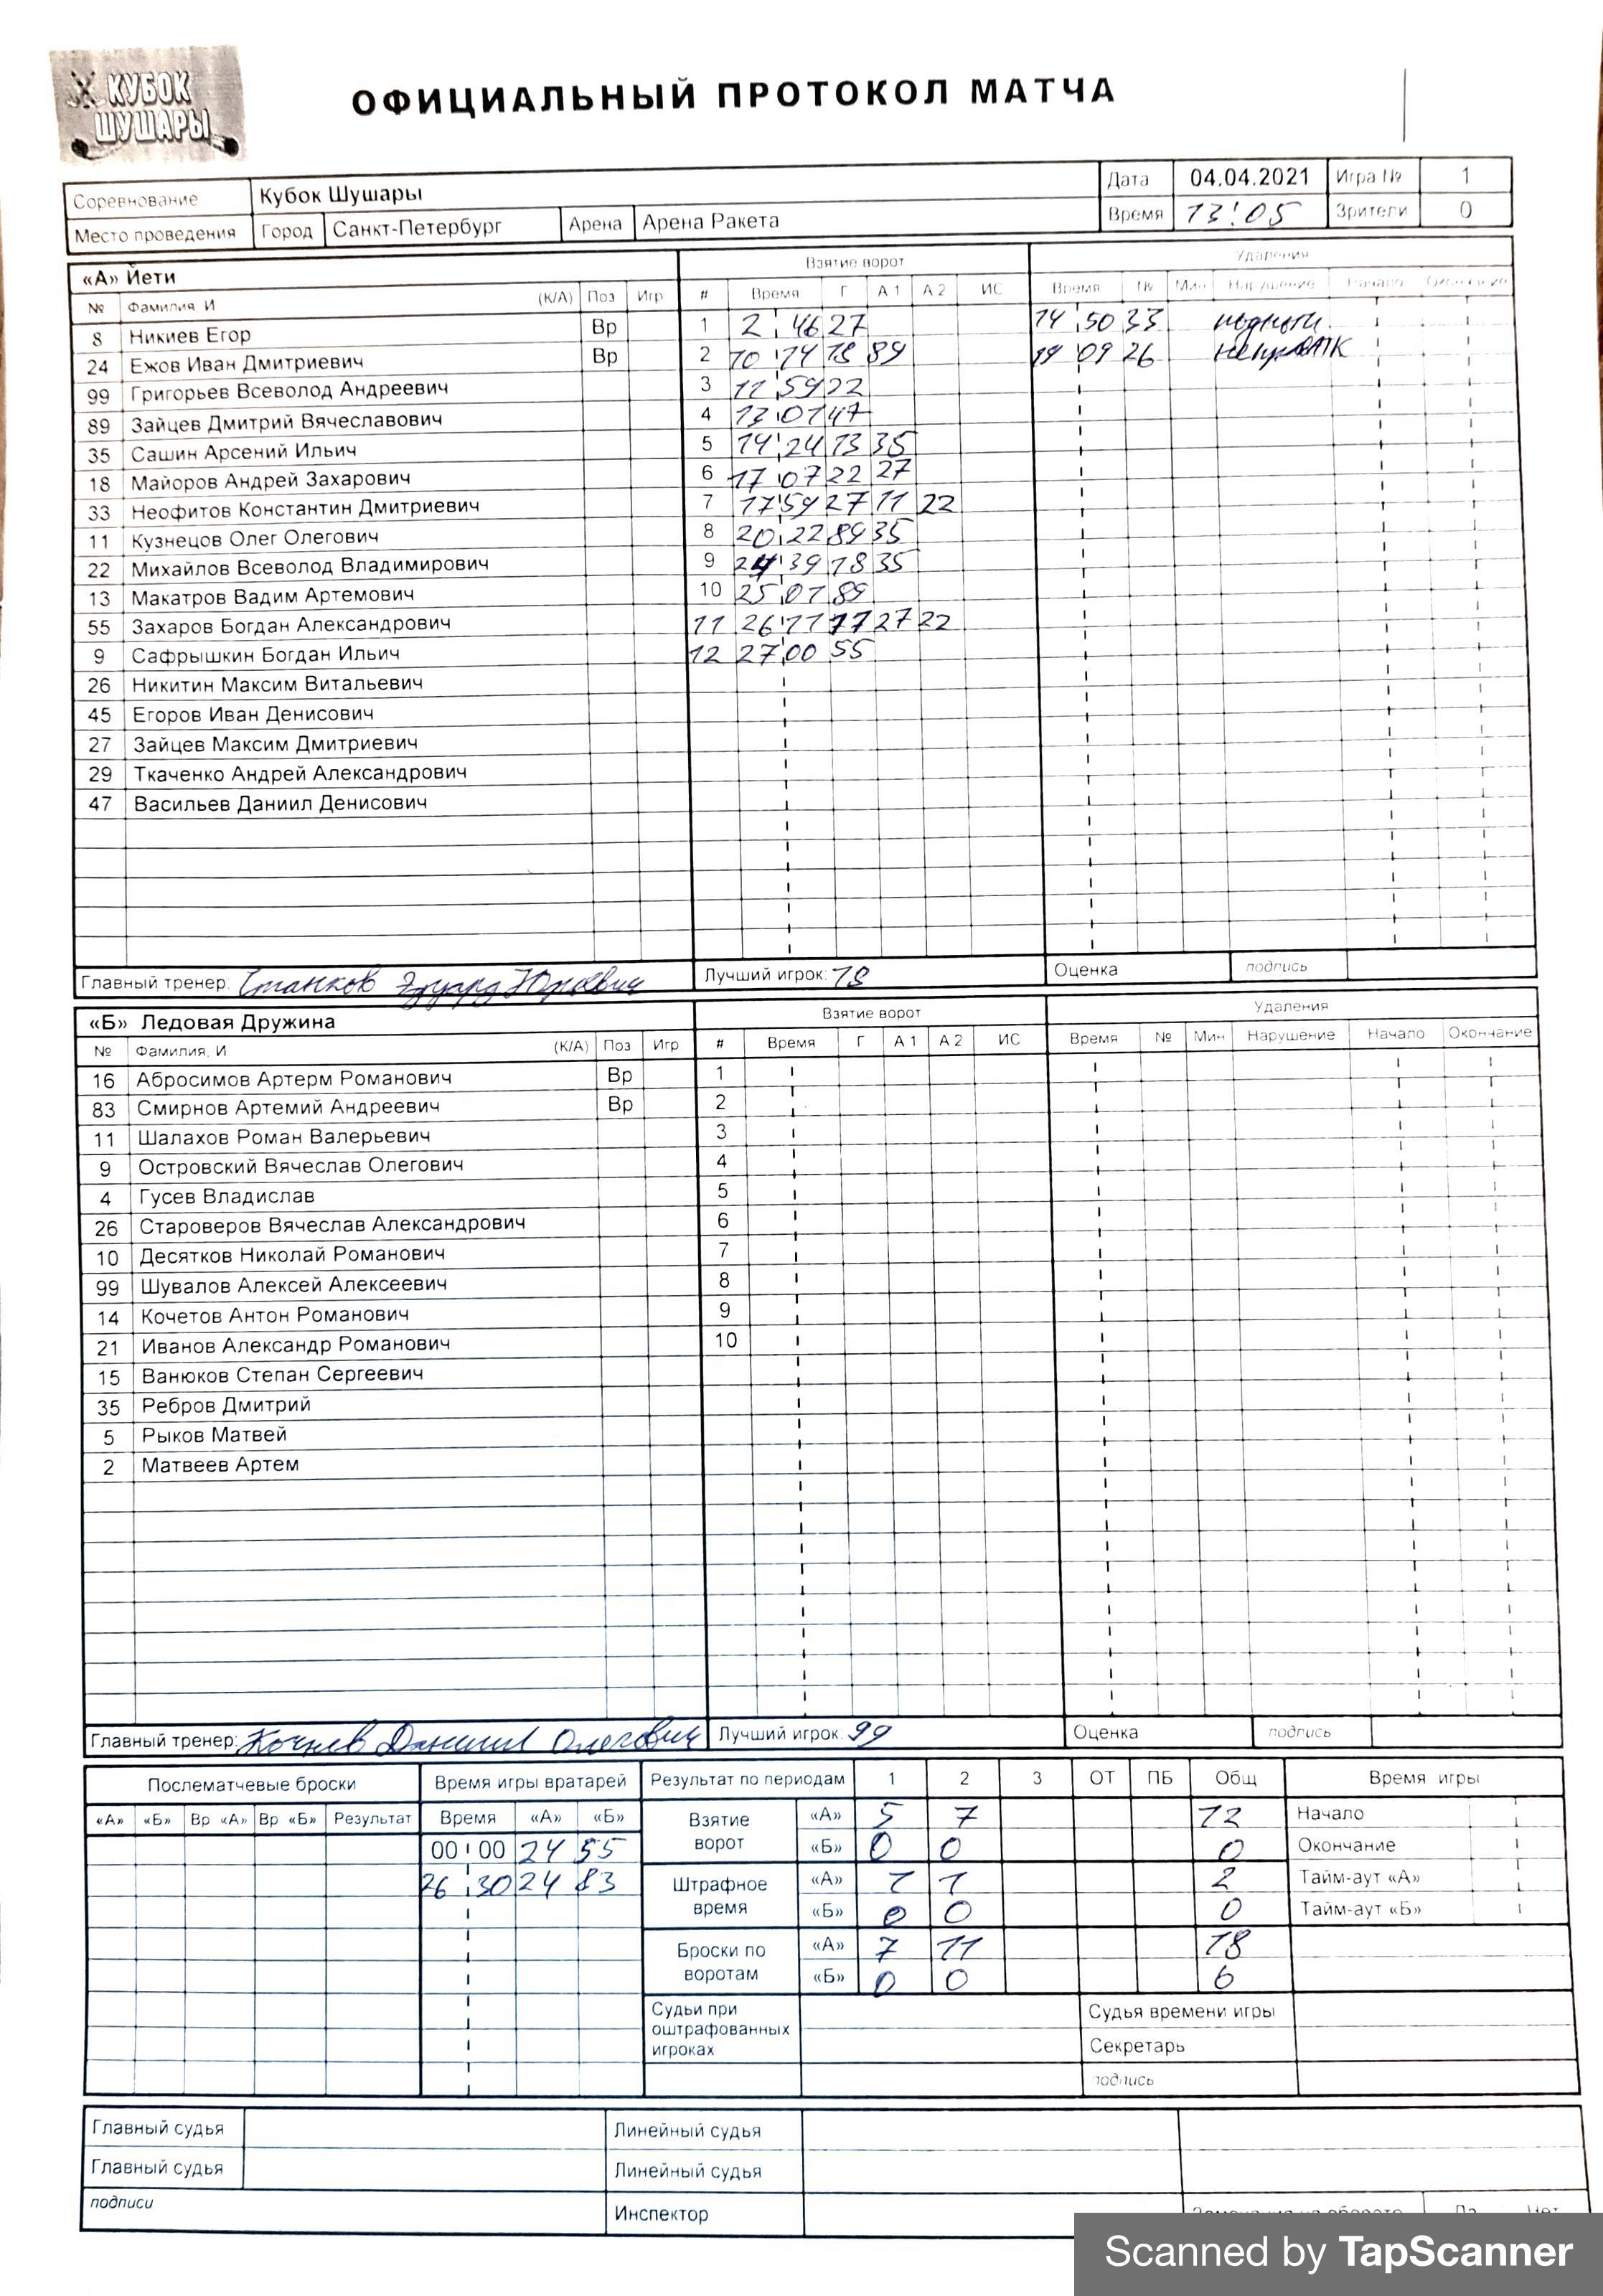 КУБОК
ШУШАРЫ
ОФИЦИАЛЬНЫЙ ПРОТОКОЛ МАТЧА
Соревнование Кубок Шушары Дата 04.04.2021 Игра № 1
Место проведения Город Санкт-Петербург Арена Арена Ракета Время 13:05 Зрители 0
«А» Йети Взятие ворот Удаления
№ Фамилия, И (К/А) Поз Игр # Время Г А 1 А 2 ИС Время № Мин Нарушение Начало Окончание
8 Никиев Егор Вр 1 2 46 27 14 50 33
24 Ежов Иван Дмитриевич Вр 2 10 14 18 89 19 09 26
99 Григорьев Всеволод Андреевич 3 11 59 22
89 Зайцев Дмитрий Вячеславович 4 13 01 47
35 Сашин Арсений Ильич 5 14 24 13 35
18 Майоров Андрей Захарович 6 17 07 22 27
33 Неофитов Константин Дмитриевич 7 17 59 27 11 22
11 Кузнецов Олег Олегович 8 20 22 89 35
22 Михайлов Всеволод Владимирович 9 24 39 18 35
13 Макатров Вадим Артемович 10 25 01 89
55 Захаров Богдан Александрович 11 26 11 11 27 22
9 Сафрышкин Богдан Ильич 12 27 00 55
26 Никитин Максим Витальевич
45 Егоров Иван Денисович
27 Зайцев Максим Дмитриевич
29 Ткаченко Андрей Александрович
47 Васильев Даниил Денисович
Главный тренер: Станков Эдуард Юрьевич Лучший игрок: 18 Оценка подпись
«Б» Ледовая Дружина Взятие ворот Удаления
№ Фамилия, И (К/А) Поз Игр # Время Г А 1 А 2 ИС Время № Мин Нарушение Начало Окончание
16 Абросимов Артерм Романович Вр 1
83 Смирнов Артемий Андреевич Вр 2
11 Шалахов Роман Валерьевич 3
9 Островский Вячеслав Олегович 4
4 Гусев Владислав 5
26 Староверов Вячеслав Александрович 6
10 Десятков Николай Романович 7
99 Шувалов Алексей Алексеевич 8
14 Кочетов Антон Романович 9
21 Иванов Александр Романович 10
15 Ванюков Степан Сергеевич
35 Ребров Дмитрий
5 Рыков Матвей
2 Матвеев Артем
Главный тренер: Кочнев Даниил Олегович Лучший игрок: 99 Оценка подпись
Послематчевые броски Время игры вратарей Результат по периодам 1 2 3 ОТ ПБ Общ Время игры
«А» «Б» Вр «А» Вр «Б» Результат Время «А» «Б» Взятие ворот «А» 5 7 12 Начало
00 00 24 55 «Б» 0 0 0 Окончание
26 30 24 83 Штрафное время «А» 1 1 2 Тайм-аут «А»
«Б» 0 0 0 Тайм-аут «Б»
Броски по воротам «А» 7 11 18
«Б» 0 0 6
Судьи при оштрафованных игроках Судья времени игры
Секретарь
подпись
Главный судья Линейный судья
Главный судья Линейный судья
подписи Инспектор
Scanned by TapScanner